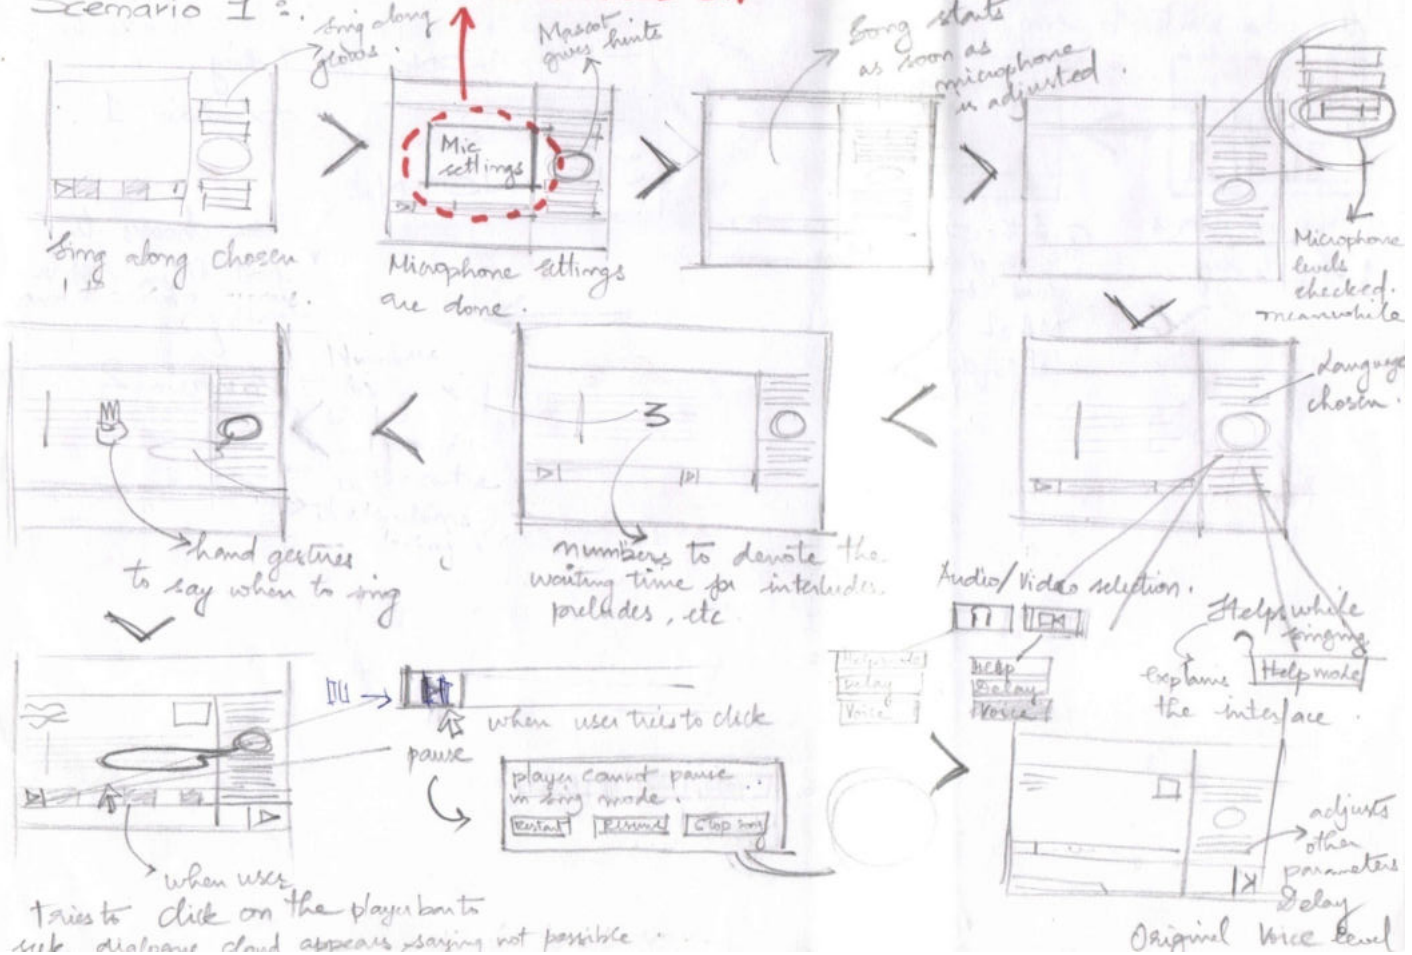 Scenario 1 :.
sing along
Mascot
gives hints
Song starts
as soon as
microphone
is adjusted.
Mic
settings
Sing along chosen
Microphone settings
are done.
Microphone
levels
checked.
meanwhile
Language
chosen.
hand gestures
to say when to sing
3
numbers to denote the
waiting time for interludes,
preludes, etc
Audio/Video selection.
Help
Delay
Voice
Delay
Voice
Helps while
singing
Help mode
explains
the interface.
when user tries to click
pause
player cannot pause
in sing mode.
Restart
Resume
Stop song
when user
tries to click on the player bar to
seek dialogue cloud appears saying not possible
adjusts
other
parameters
Delay
Original Voice level